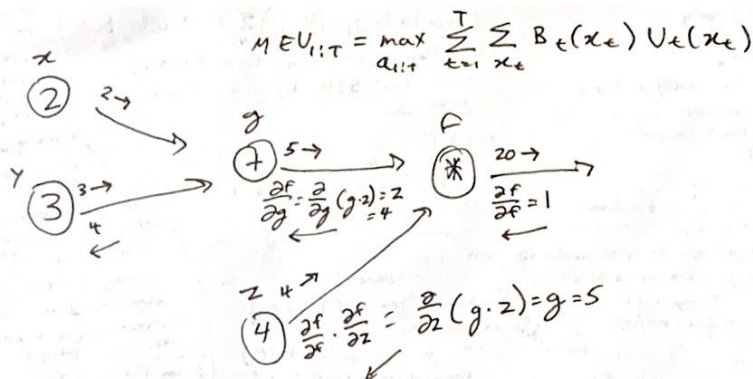 MEU₁:T = max_{a₁:T} Σ_{t=1}^{T} Σ_{xₜ} Bₜ(xₜ) Uₜ(xₜ)
x
2 2→
g f
Y
+ 5→ * 20→
3 3→
4
←
∂f/∂g = ∂/∂g (g·z) = z
= 4
←
∂f/∂f = 1
←
z 4↗
4 ∂f/∂f · ∂f/∂z = ∂/∂z (g·z) = g = 5
↙